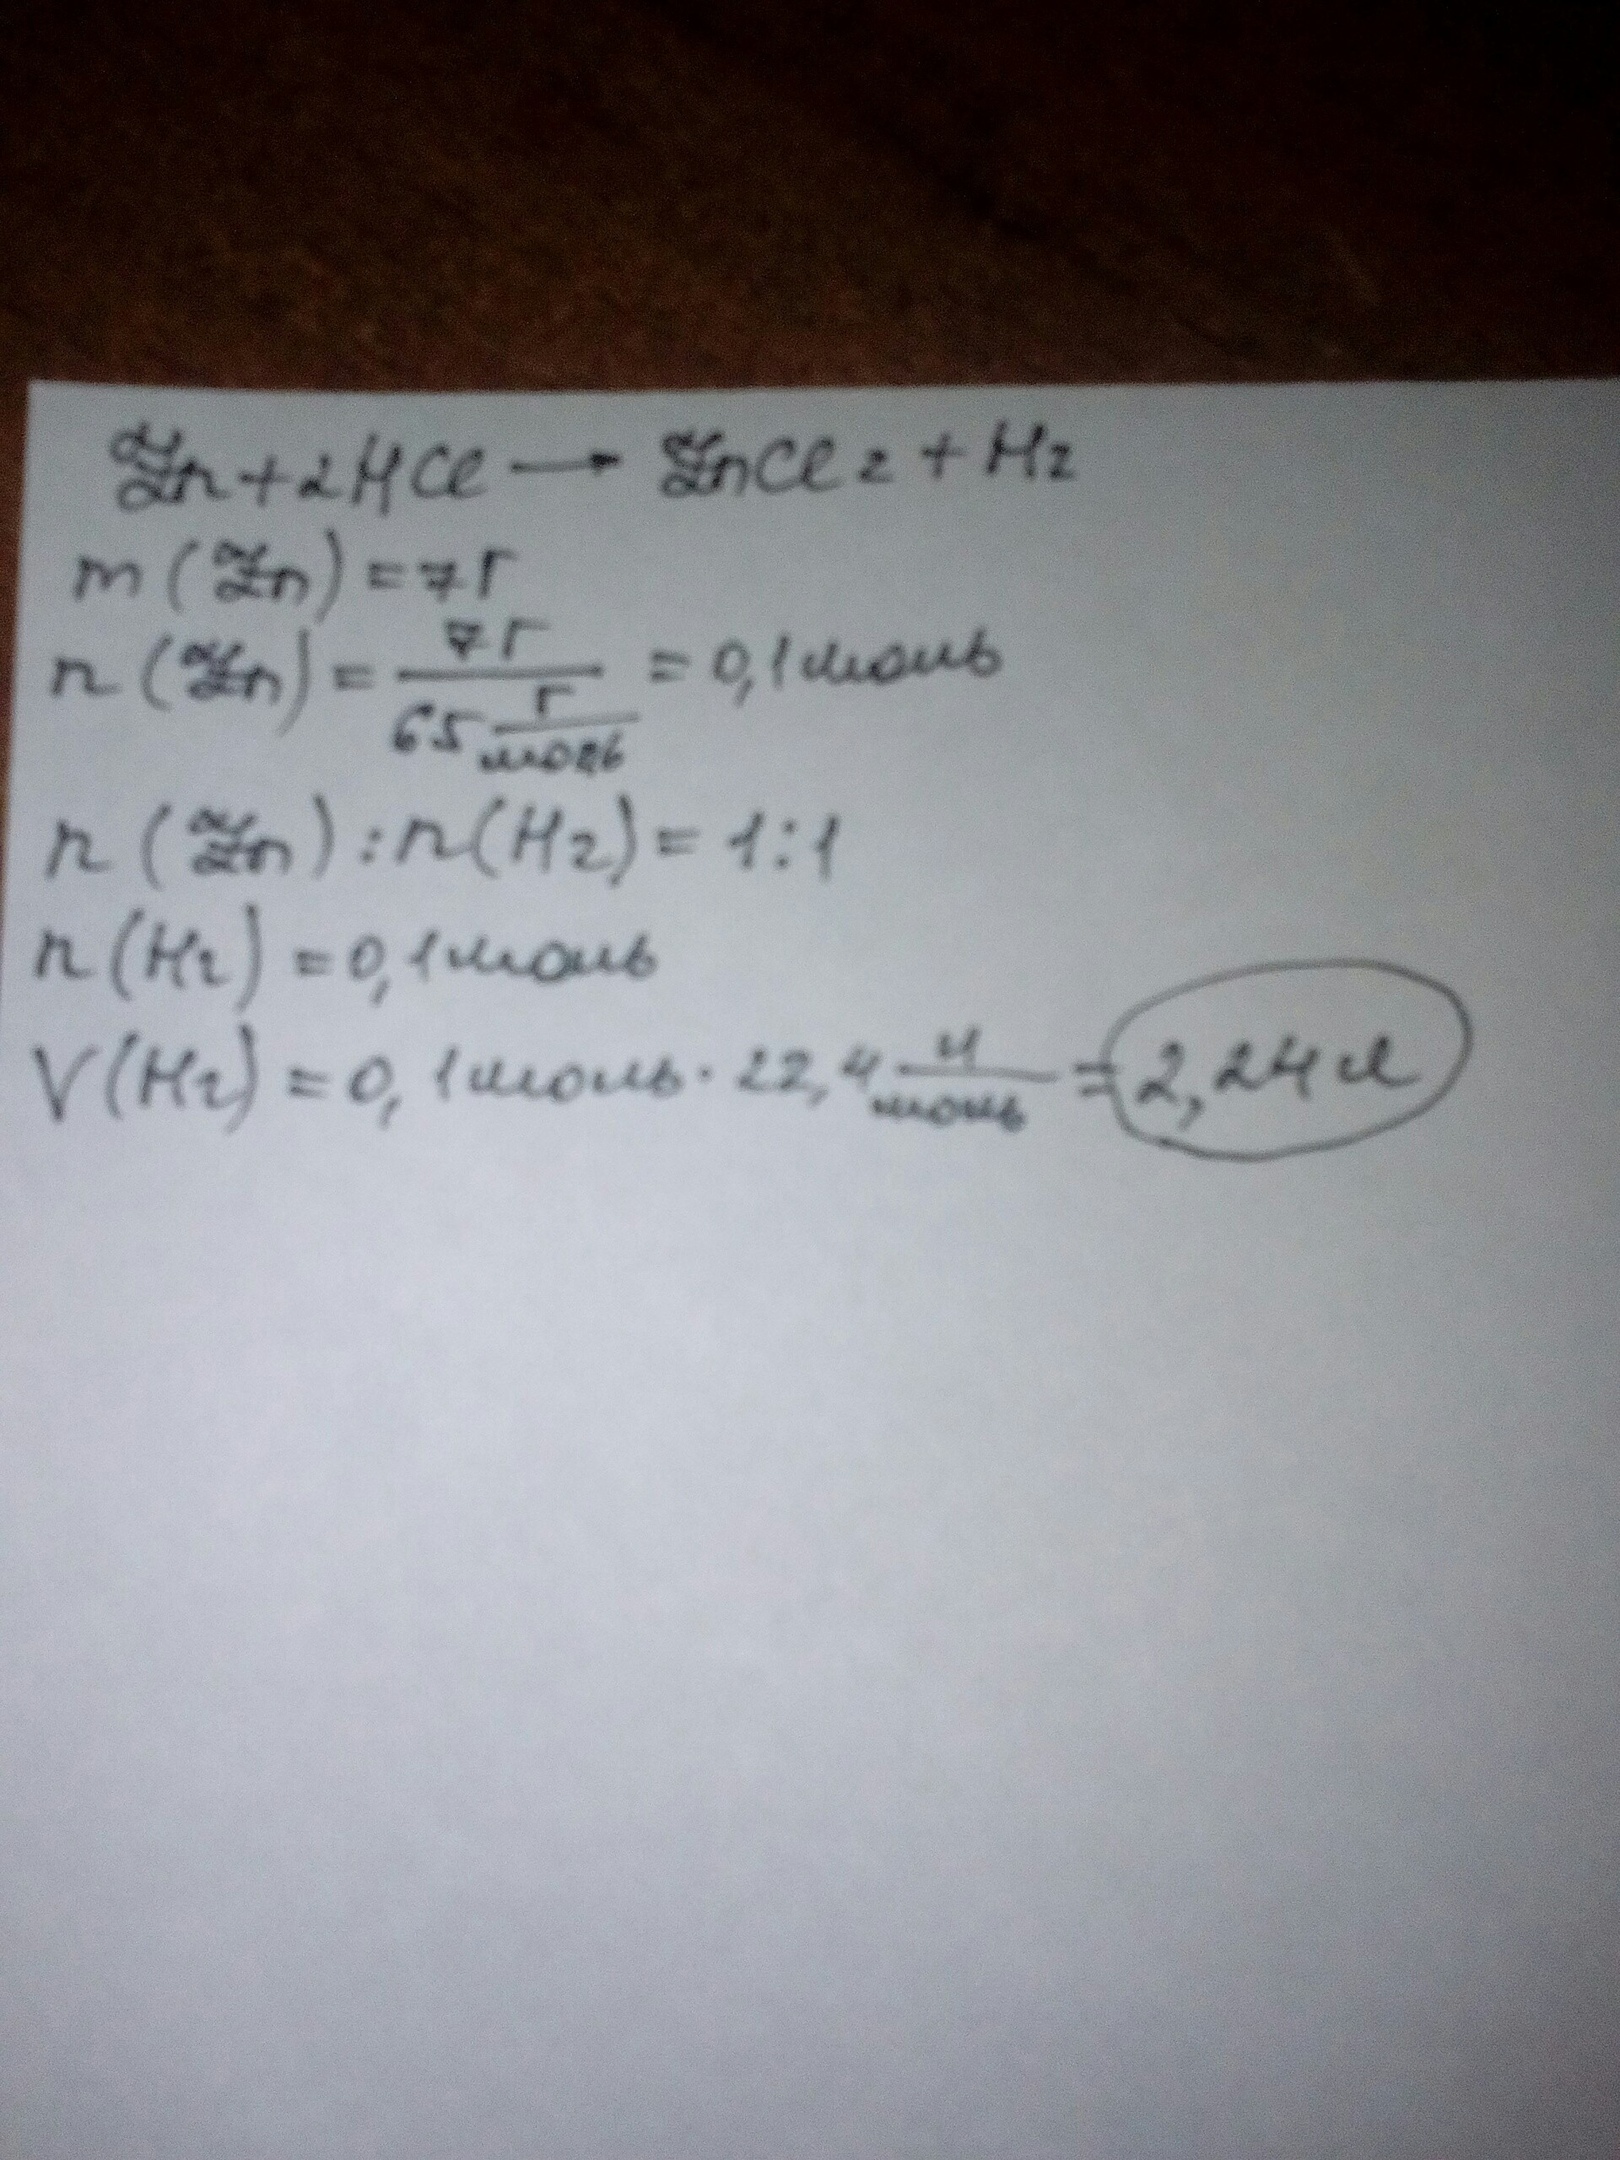 Zn+2HCl → ZnCl2+H2
m(Zn)=7г
n(Zn)=7г/65 г/моль=0,1моль
n(Zn):n(H2)=1:1
n(H2)=0,1моль
V(H2)=0,1моль·22,4 л/моль=2,24л